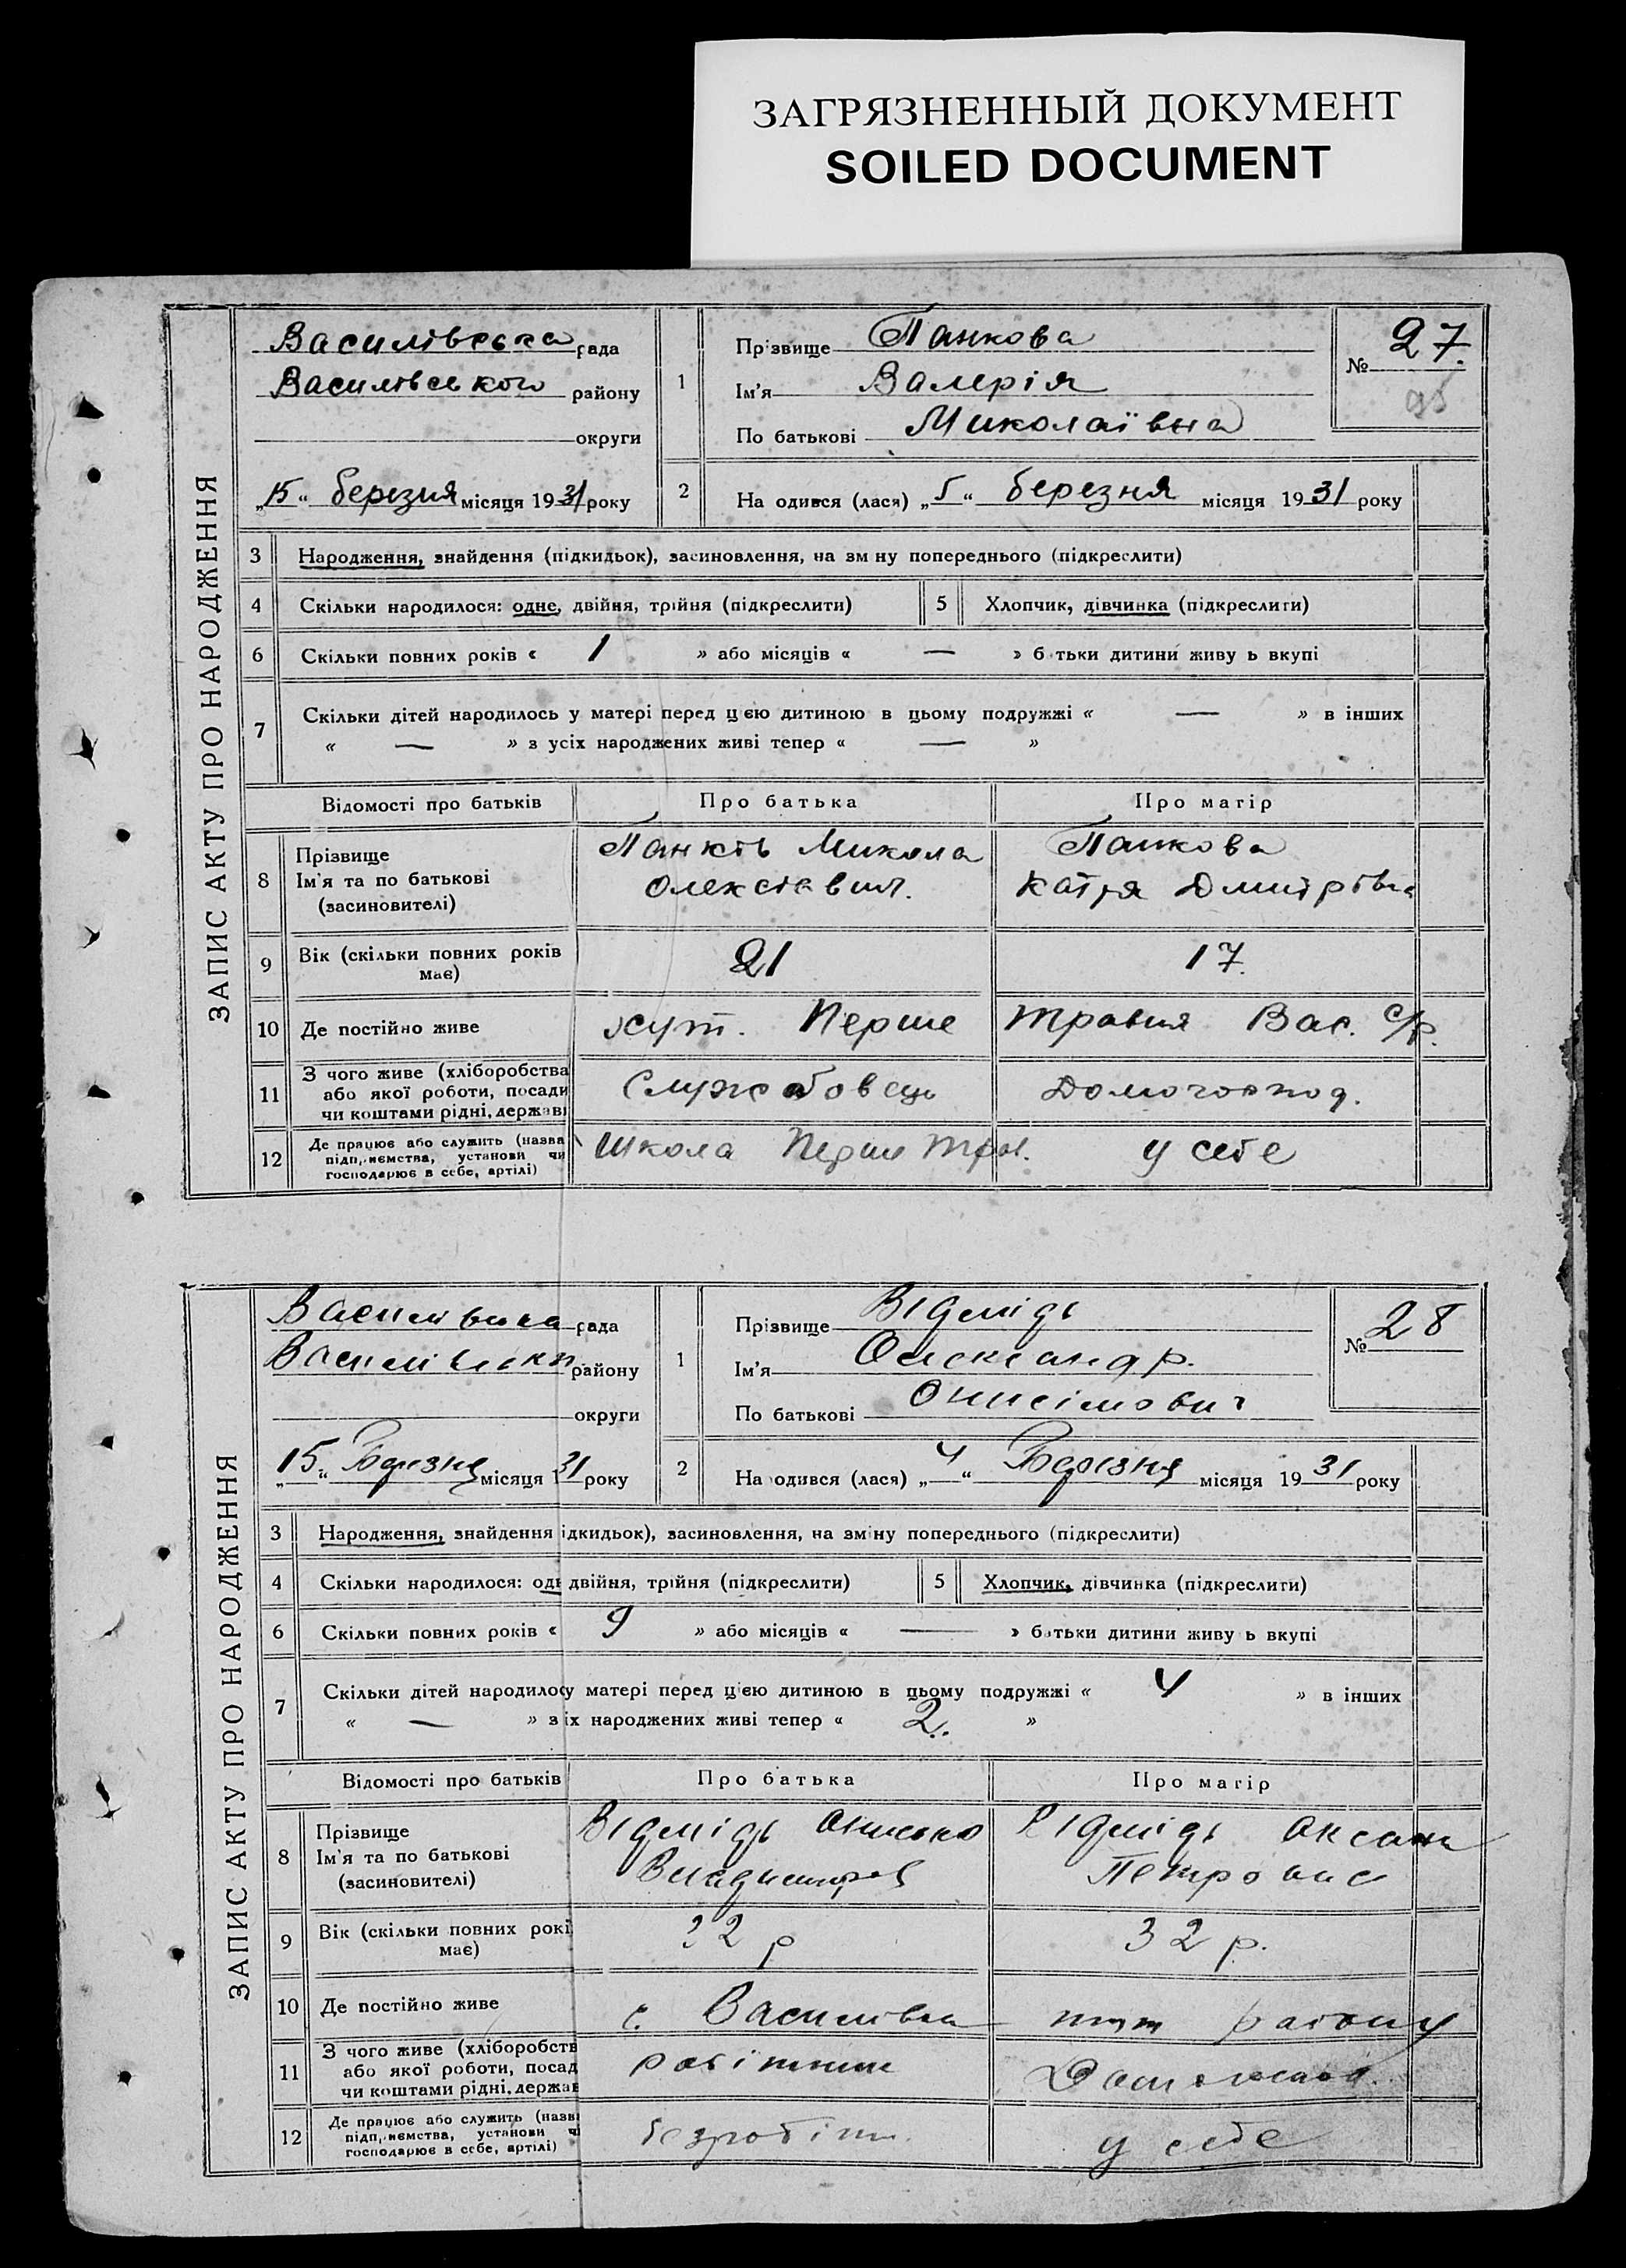 ЗАГРЯЗНЕННЫЙ ДОКУМЕНТ
SOILED DOCUMENT
ЗАПИС АКТУ ПРО НАРОДЖЕННЯ
Василівська рада
Василівського району
округи
„15“ березня місяця 1931 року
1
Прізвище Панкова
Ім'я Валерія
По батькові Миколаївна
№ 27.
95
2 На одився (лася) „5“ березня місяця 1931 року
3 Народження, знайдення (підкидьок), засиновлення, на зм ну попереднього (підкреслити)
4 Скільки народилося: одне, двійня, трійня (підкреслити) 5 Хлопчик, дівчинка (підкреслити)
6 Скільки повних років « 1 » або місяців « — » б тьки дитини живу ь вкупі
7 Скільки дітей народилось у матері перед цією дитиною в цьому подружжі « — » в інших
« — » з усіх народжених живі тепер « — »
Відомості про батьків Про батька Про матір
8 Прізвище
Ім'я та по батькові
(засиновителі)
Панків Микола
Олексієвич.
Панкова
Катря Дмитрівна
9 Вік (скільки повних років
має)
21 17.
10 Де постійно живе хут. Перше Травня Вас. с/р.
11 З чого живе (хліборобства
або якої роботи, посади
чи коштами рідні, держав
Службовець Домогоспод.
12 Де працює або служить (назва
підприємства, установи чи
господарює в себе, артілі)
Школа Перш Трав. у себе
ЗАПИС АКТУ ПРО НАРОДЖЕННЯ
Василівська рада
району
округи
„15“ Березня місяця 31 року
1
Прізвище Відмідь
Ім'я Олександр.
По батькові Онисімович
№ 28
2 На одився (лася) „4“ Березня місяця 1931 року
3 Народження, знайдення ідкидьок), засиновлення, на зміну попереднього (підкреслити)
4 Скільки народилося: одн двійня, трійня (підкреслити) 5 Хлопчик, дівчинка (підкреслити)
6 Скільки повних років « 9 » або місяців « — » батьки дитини живу ь вкупі
7 Скільки дітей народилосу матері перед цією дитиною в цьому подружжі « 4 » в інших
« — » з їх народжених живі тепер « 2. »
Відомості про батьків Про батька Про матір
8 Прізвище
Ім'я та по батькові
(засиновителі)
Відмідь Онисько
Відмідь Оксана
Петровна
9 Вік (скільки повних рокі
має)
32 р 32 р.
10 Де постійно живе с. Василівка тут району
11 З чого живе (хліборобств
або якої роботи, посад
чи коштами рідні, держав
робітник
12 Де працює або служить (назв
підприємства, установи чі
господарює в себе, артілі)
безробітн. у себе